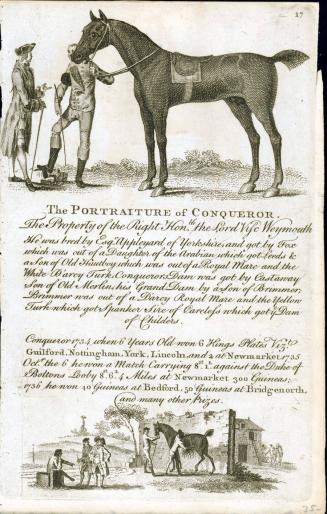 17
The PORTRAITURE of CONQUEROR.
The Property of the Right Hon.ble the Lord Visc.t Weymouth
He was bred by Esq.r Appleyard of Yorkshire, and got by Fox
which was out of a Daughter of the Arabian which got Leeds &
a Son of Old Hautboy which was out of a Royal Mare and the
White Darcy Turk. Conquerors Dam was got by Castaway
Son of Old Merlin, his Grand Dam by a Son of Brimmer,
Brimmer was out of a Darcy Royal Mare and the Yellow
Turk which got Spanker Sire of Careless which got y.e Dam
of Childers.
Conqueror 1734 when 6 Years Old won 6 Kings Plates Viz.t
Guilford, Nottingham, York, Lincoln, and 2 at Newmarket, 1735
Oct.r the 6 he won a Match Carrying 8.st 1.lb against the Duke of
Boltons Looby 8.st 6.lb 4 Miles at Newmarket 300 Guineas;
1736 he won 40 Guineas at Bedford, 50 Guineas at Bridgenorth,
and many other Prizes.
35-